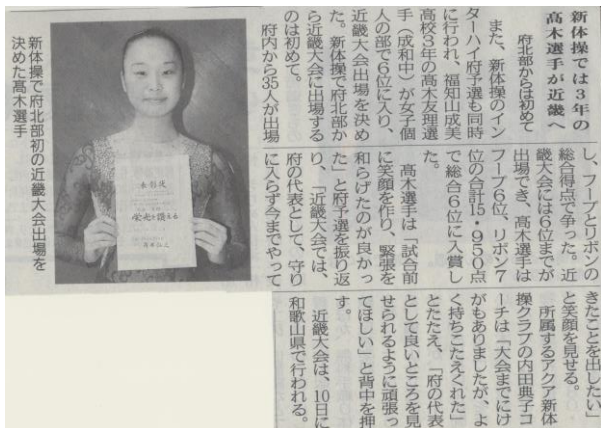 新体操では3年の
髙木選手が近畿へ
府北部からは初めて
また、新体操のイン
ターハイ府予選も同時
に行われ、福知山成美
高校3年の髙木友理選
手（成和中）が女子個
人の部で6位に入り、
近畿大会出場を決め
た。新体操で府北部か
ら近畿大会に出場する
のは初めて。
府内から35人が出場
し、フープとリボンの
総合得点で争った。近
畿大会には6位までが
出場でき、髙木選手は
フープ6位、リボン7
位の合計15・950点
で総合6位に入賞し
た。
髙木選手は「試合前
に笑顔を作り、緊張を
和らげたのが良かっ
た」と府予選を振り返
り、「近畿大会では、
府の代表として、守り
に入らず今までやって
きたことを出したい」
と笑顔を見せる。
所属するアクア新体
操クラブの内田典子コ
ーチは「大会までにけ
がもありましたが、よ
く持ちこたえてくれた」
とたたえ、「府の代表
として良いところを見
せられるように頑張っ
てほしい」と背中を押
す。
近畿大会は、10日に
和歌山県で行われる。
新体操で府北部初の近畿大会出場を
決めた髙木選手
表彰状
栄光を讃える